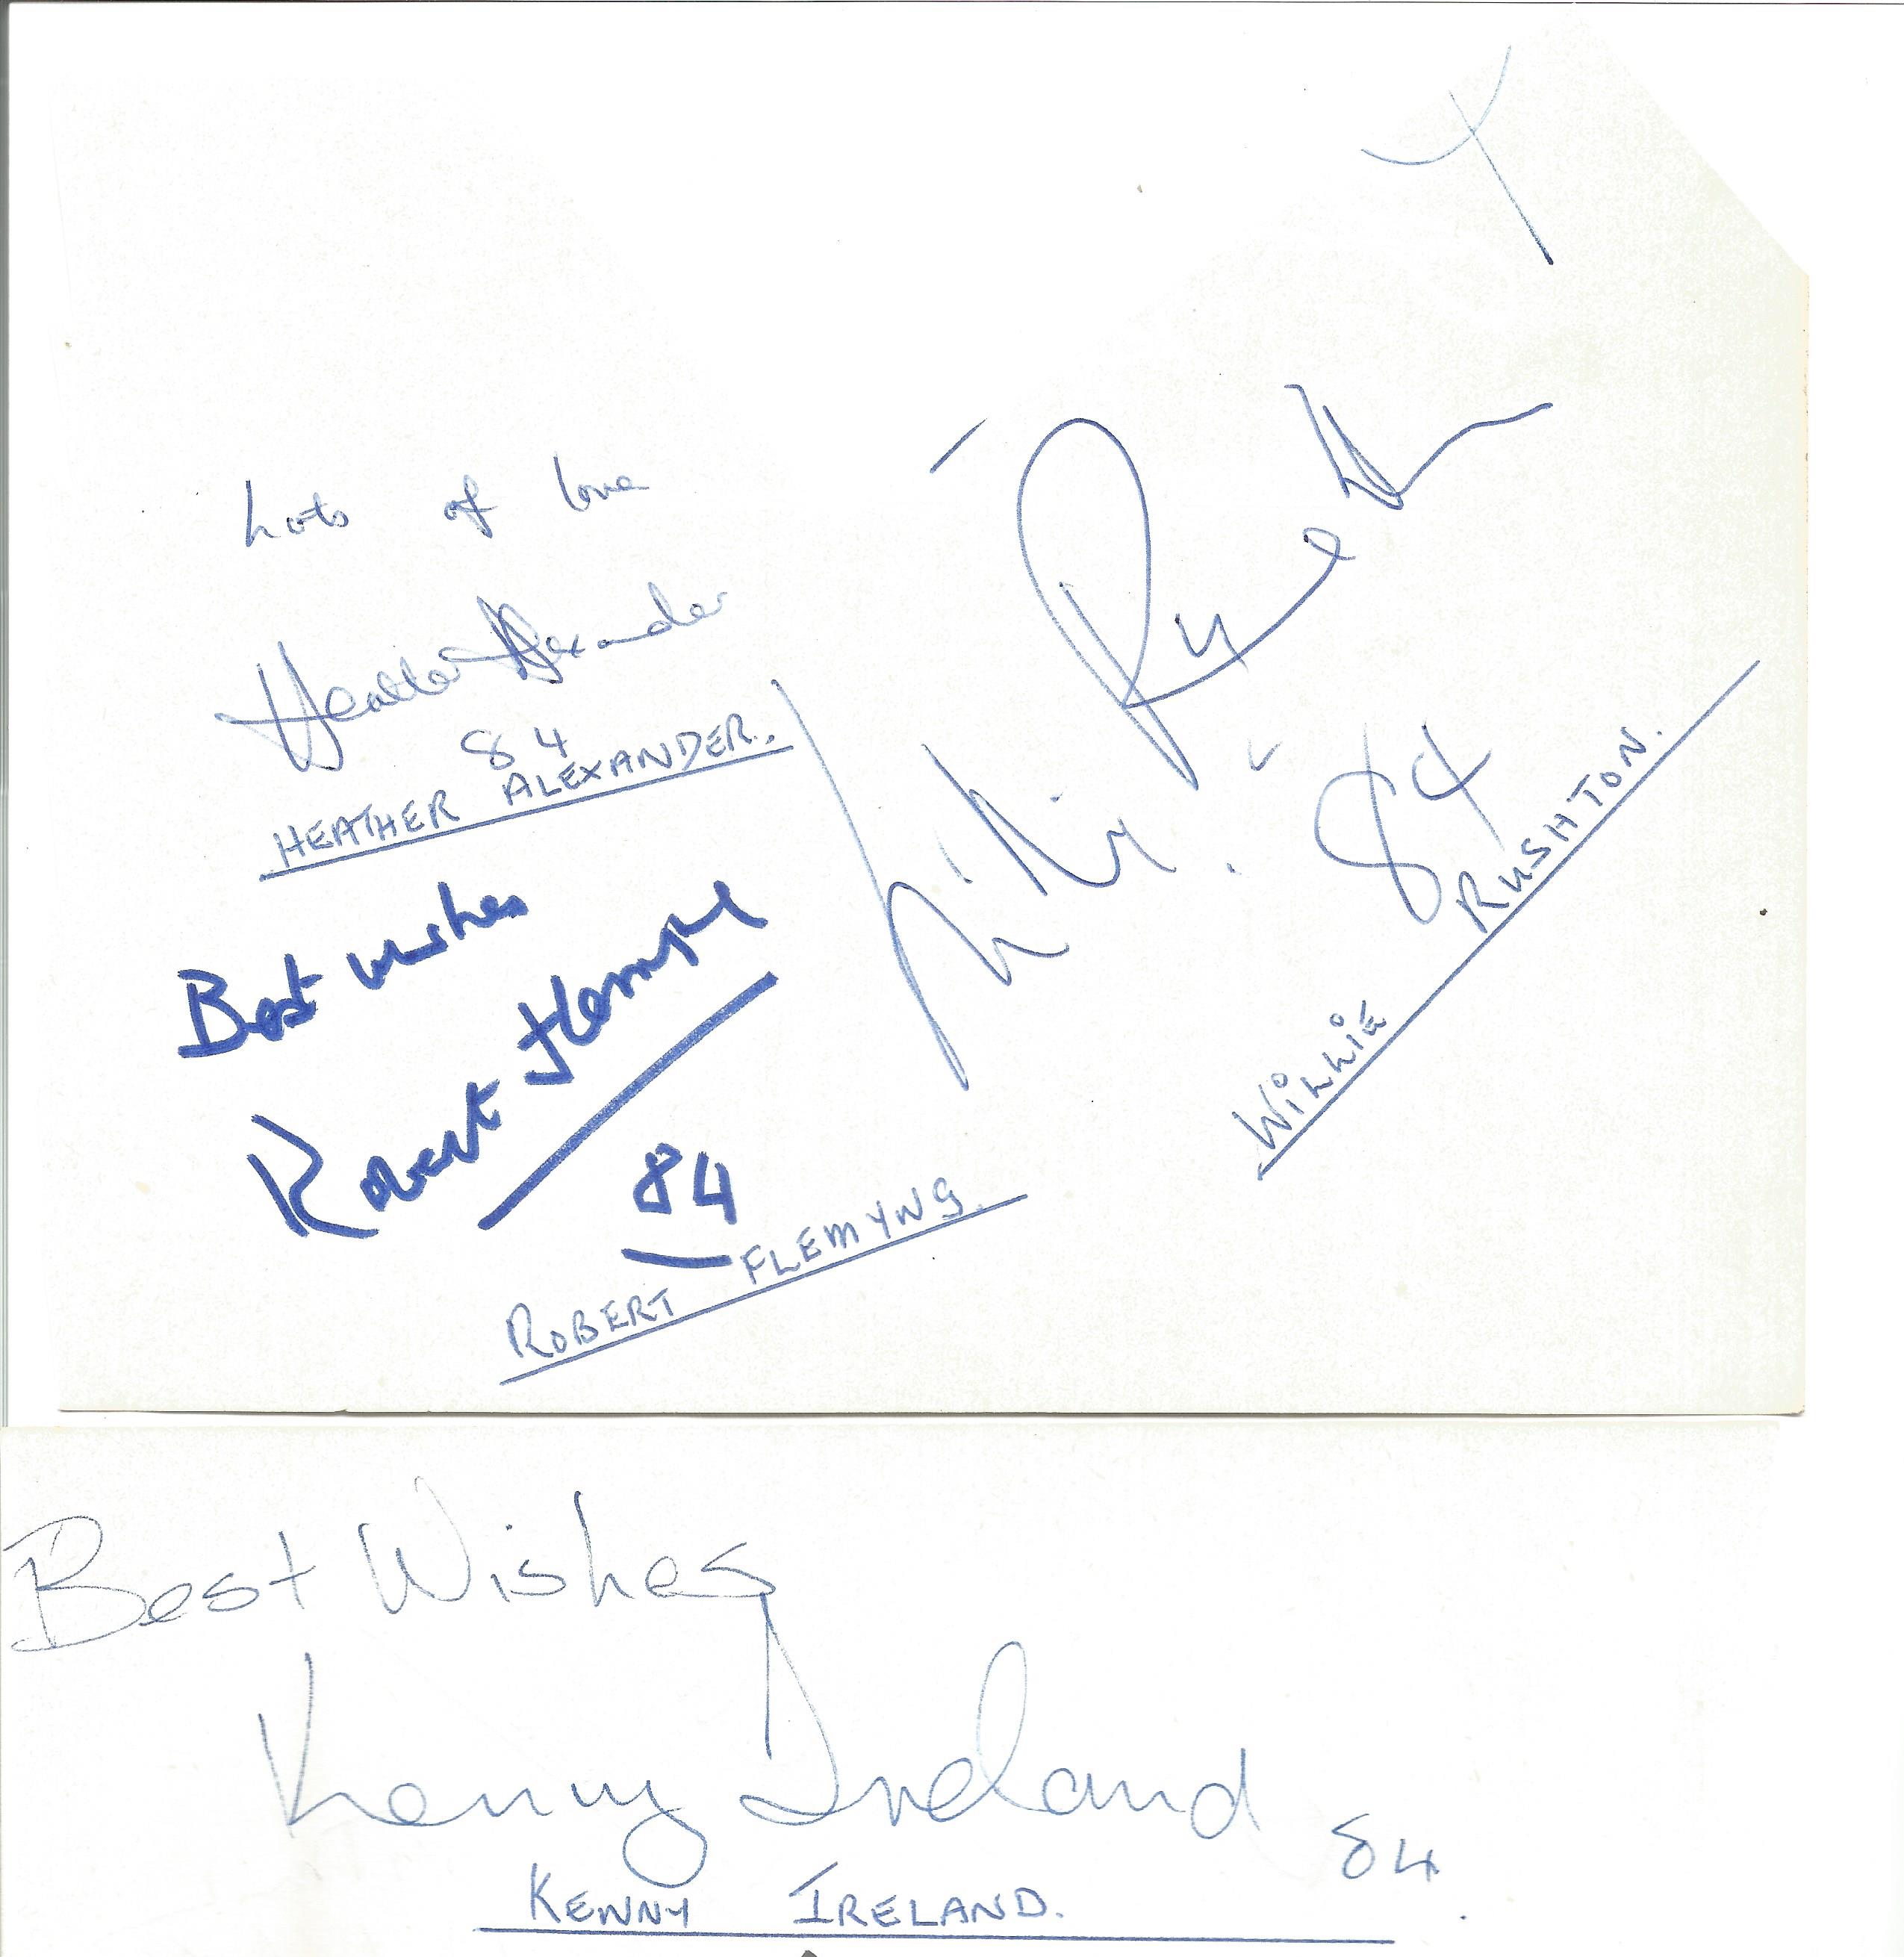 Lots of love
Heather Alexander
84
HEATHER ALEXANDER.
Best wishes
Robert Flemyng
84
ROBERT FLEMYNG.
Willie Rushton
84
WILLIE RUSHTON.
Best Wishes
Kenny Ireland
84
KENNY IRELAND.